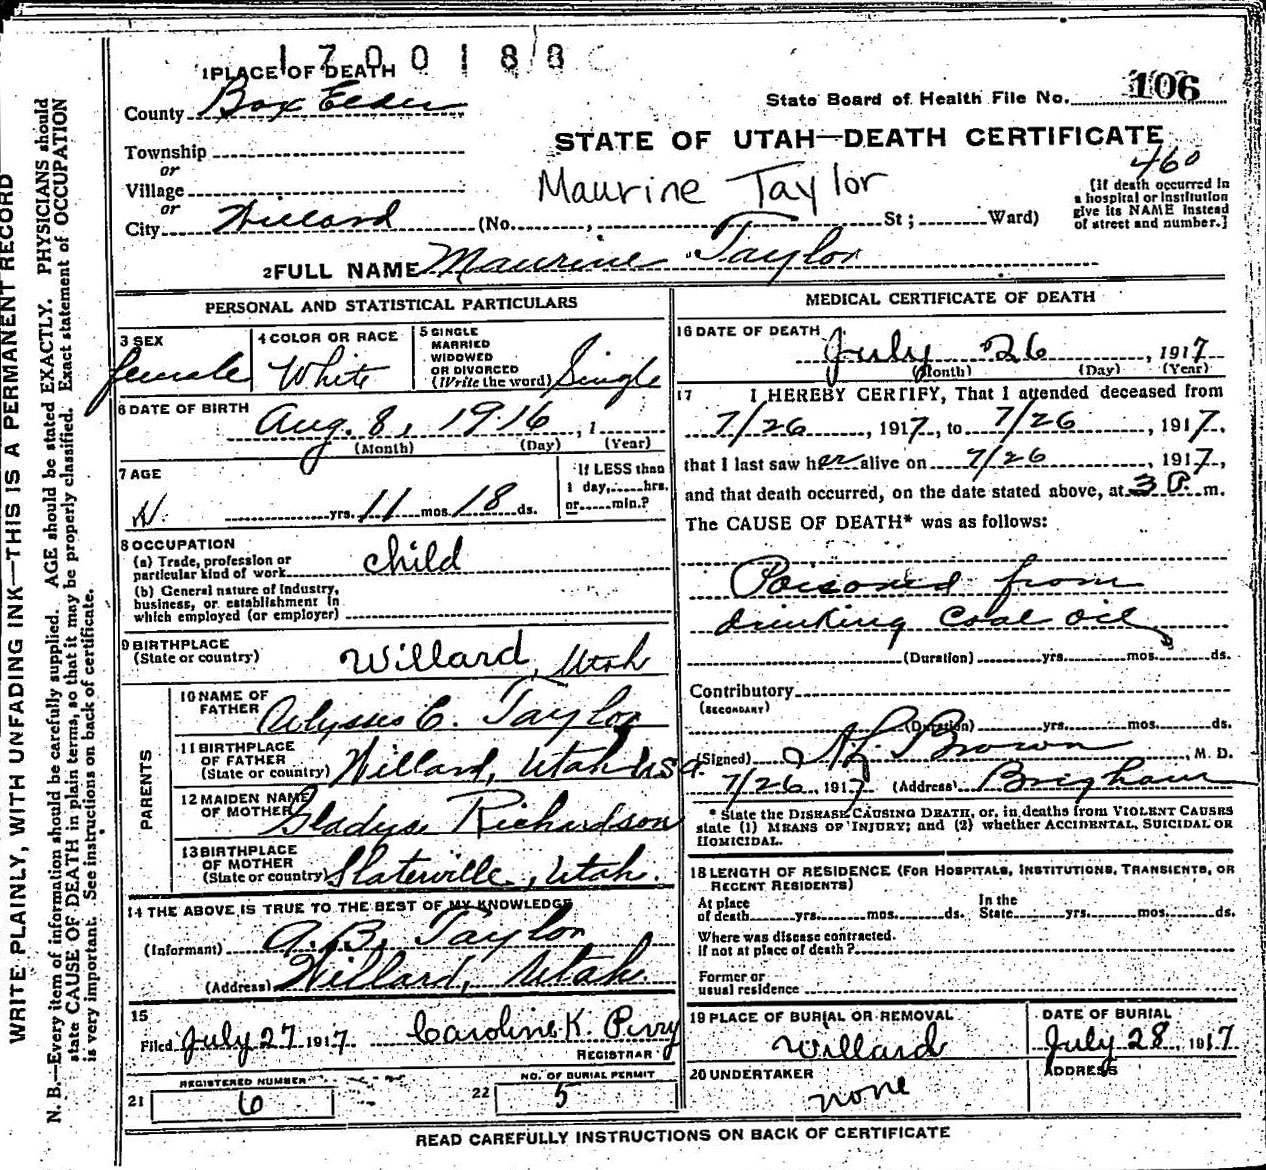 1700188
1 PLACE OF DEATH
County Box Elder
State Board of Health File No. 106
STATE OF UTAH—DEATH CERTIFICATE
Township
or
Village
or
City Willard (No. , St; Ward)
Maurine Taylor
460
[If death occurred in
a hospital or institution
give its NAME instead
of street and number.]
2 FULL NAME Maurine Taylor
PERSONAL AND STATISTICAL PARTICULARS
3 SEX
female
4 COLOR OR RACE
White
5 SINGLE
MARRIED
WIDOWED
OR DIVORCED
(Write the word) Single
6 DATE OF BIRTH
Aug. 8, 1916, 1
(Month) (Day) (Year)
7 AGE
yrs. 11 mos. 18 ds.
If LESS than
1 day, hrs.
or min.?
8 OCCUPATION
(a) Trade, profession or
particular kind of work child
(b) General nature of industry,
business, or establishment in
which employed (or employer)
9 BIRTHPLACE
(State or country) Willard, Utah
PARENTS
10 NAME OF
FATHER Ulysses C. Taylor
11 BIRTHPLACE
OF FATHER
(State or country) Willard, Utah USA.
12 MAIDEN NAME
OF MOTHER Gladyse Richardson
13 BIRTHPLACE
OF MOTHER
(State or country) Slaterville, Utah.
14 THE ABOVE IS TRUE TO THE BEST OF MY KNOWLEDGE
(Informant) A. B. Taylor
(Address) Willard, Utah.
15
Filed July 27 1917. Caroline K. Perry
REGISTRAR
REGISTERED NUMBER
21 6
NO. OF BURIAL PERMIT
22 5
MEDICAL CERTIFICATE OF DEATH
16 DATE OF DEATH
July 26, 1917
(Month) (Day) (Year)
17 I HEREBY CERTIFY, That I attended deceased from
7/26, 1917, to 7/26, 1917,
that I last saw her alive on 7/26, 1917,
and that death occurred, on the date stated above, at 3 P. m.
The CAUSE OF DEATH* was as follows:
Poisoned from
drinking Coal oil
(Duration) yrs. mos. ds.
Contributory
(SECONDARY)
(Duration) yrs. mos. ds.
(Signed) Brown, M. D.
7/26, 1917 (Address) Brigham
* State the DISEASE CAUSING DEATH, or, in deaths from VIOLENT CAUSES
state (1) MEANS OF INJURY; and (2) whether ACCIDENTAL, SUICIDAL OR
HOMICIDAL.
18 LENGTH OF RESIDENCE (FOR HOSPITALS, INSTITUTIONS, TRANSIENTS, OR
RECENT RESIDENTS)
At place
of death yrs. mos. ds.
In the
State yrs. mos. ds.
Where was disease contracted.
if not at place of death?
Former or
usual residence
19 PLACE OF BURIAL OR REMOVAL
Willard
DATE OF BURIAL
July 28, 1917.
20 UNDERTAKER
none
ADDRESS
READ CAREFULLY INSTRUCTIONS ON BACK OF CERTIFICATE
WRITE PLAINLY, WITH UNFADING INK—THIS IS A PERMANENT RECORD
N. B.—Every item of information should be carefully supplied. AGE should be stated EXACTLY. PHYSICIANS should
state CAUSE OF DEATH in plain terms, so that it may be properly classified. Exact statement of OCCUPATION
is very important. See instructions on back of certificate.